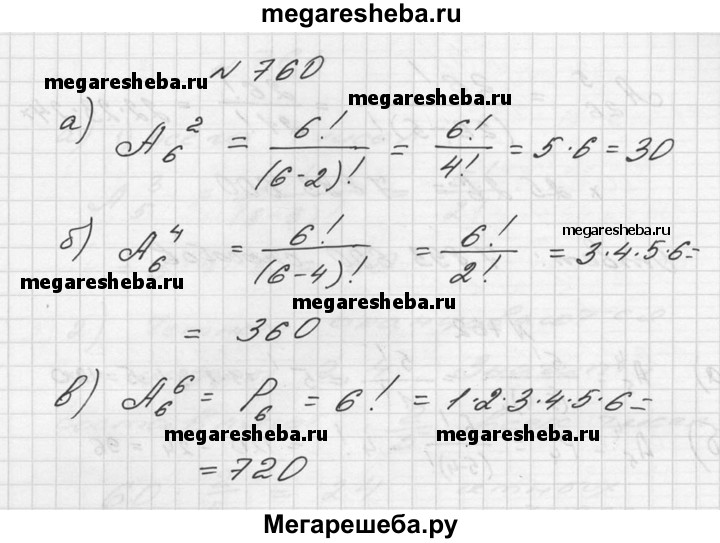 megaresheba.ru
megaresheba.ru № 760 megaresheba.ru
а) A₆² = 6!/(6-2)! = 6!/4! = 5·6 = 30
megaresheba.ru
б) A₆⁴ = 6!/(6-4)! = 6!/2! = 3·4·5·6=
megaresheba.ru megaresheba.ru
= 360
в) A₆⁶ = P₆ = 6! = 1·2·3·4·5·6=
megaresheba.ru megaresheba.ru
= 720
Мегарешеба.ру